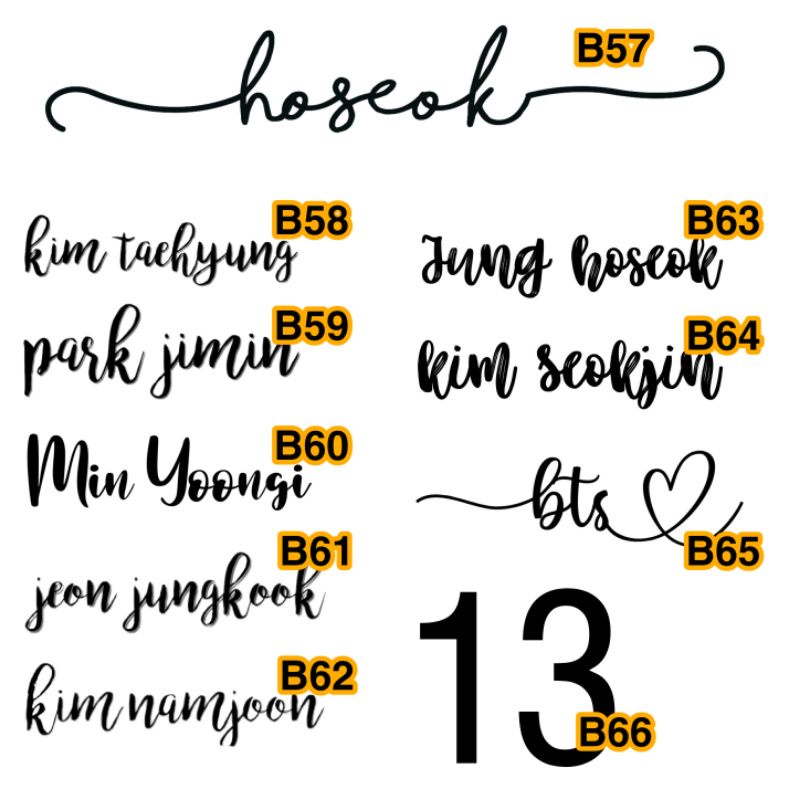 B57
hoseok
B58
kim taehyung
B59
park jimin
B60
Min Yoongi
B61
jeon jungkook
B62
kim namjoon
B63
Jung hoseok
B64
kim seokjin
bts
B65
13
B66